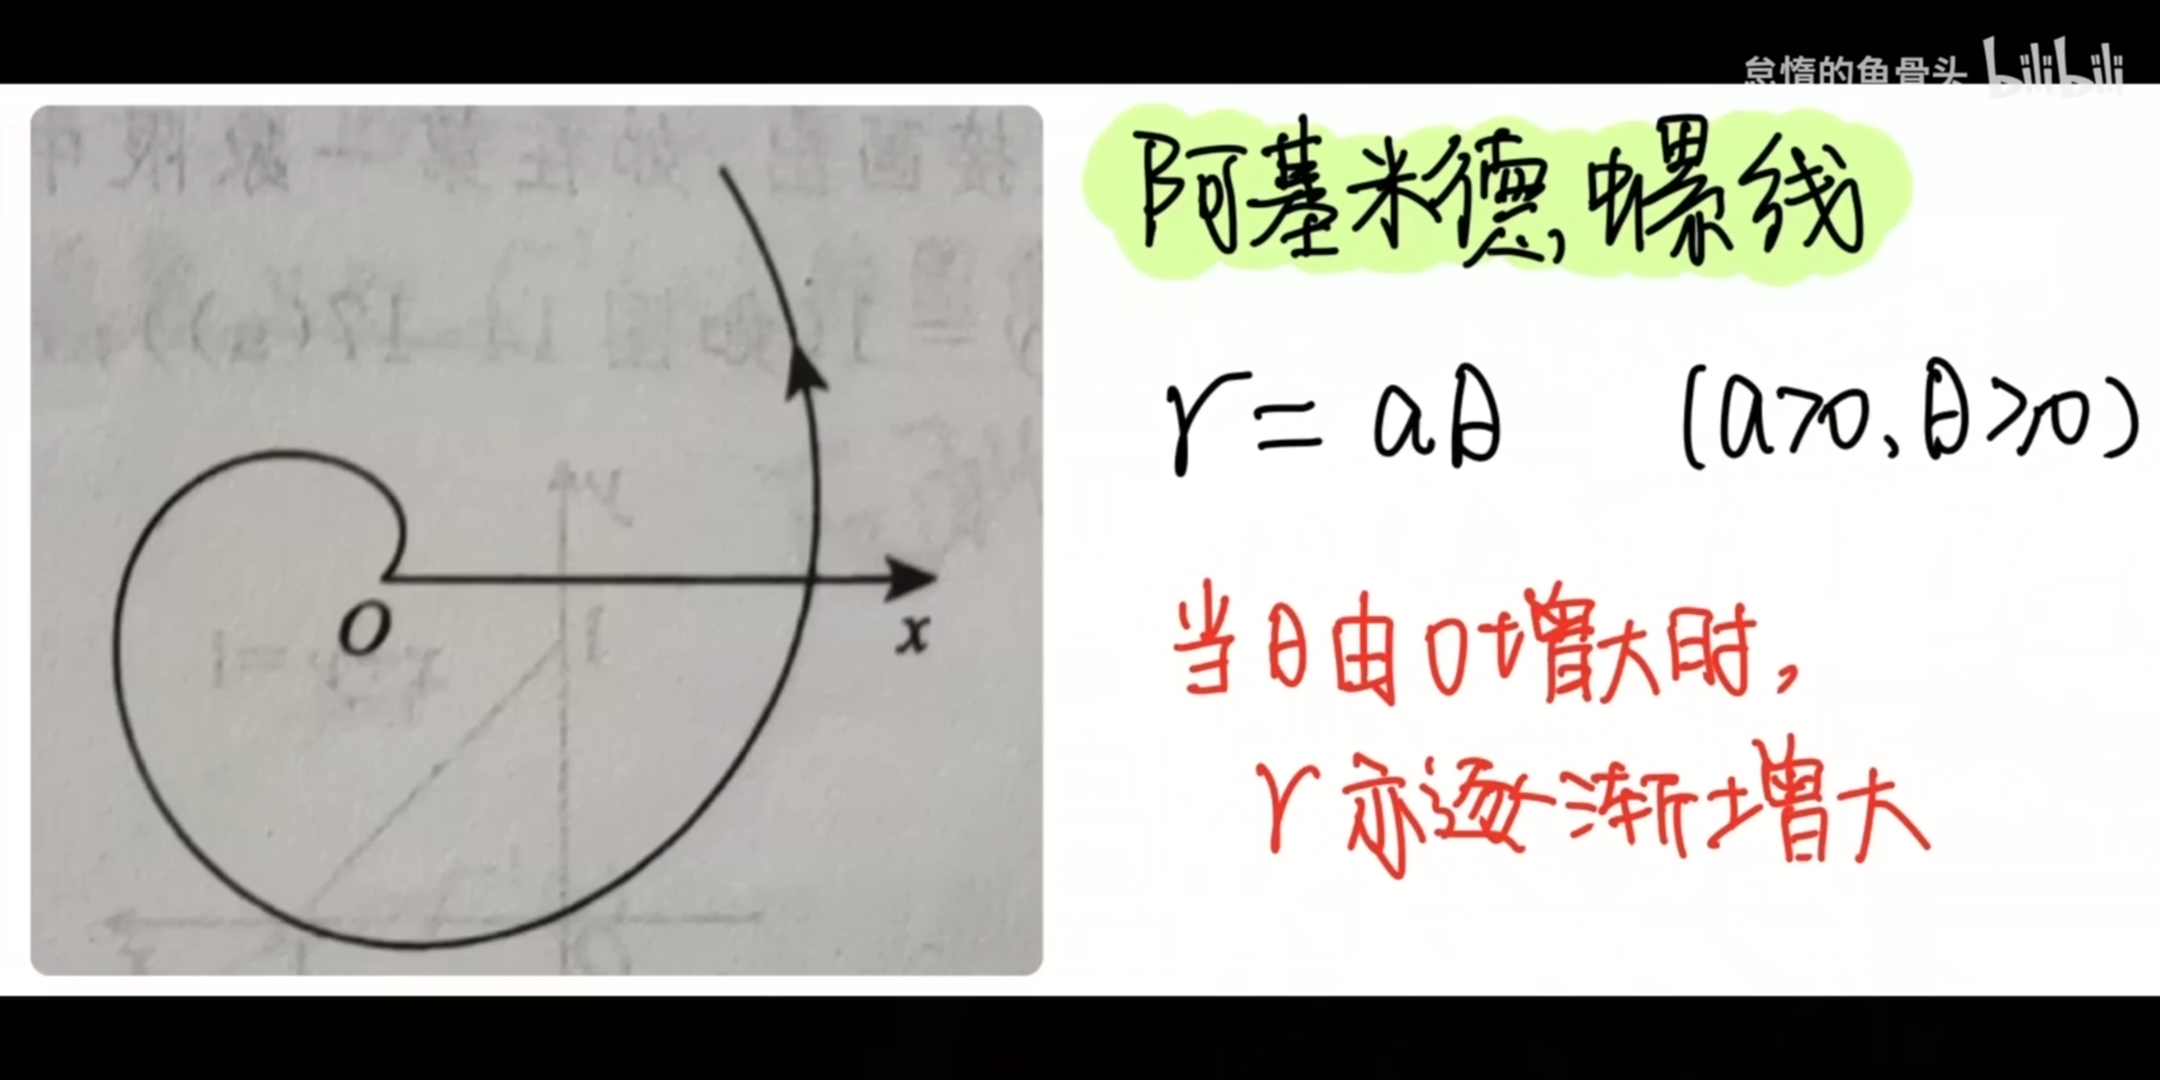 怠惰的鱼骨头 bilibili
阿基米德螺线
r = aθ (a>0、θ≥0)
当θ由0增大时，
r亦逐渐增大
O
x